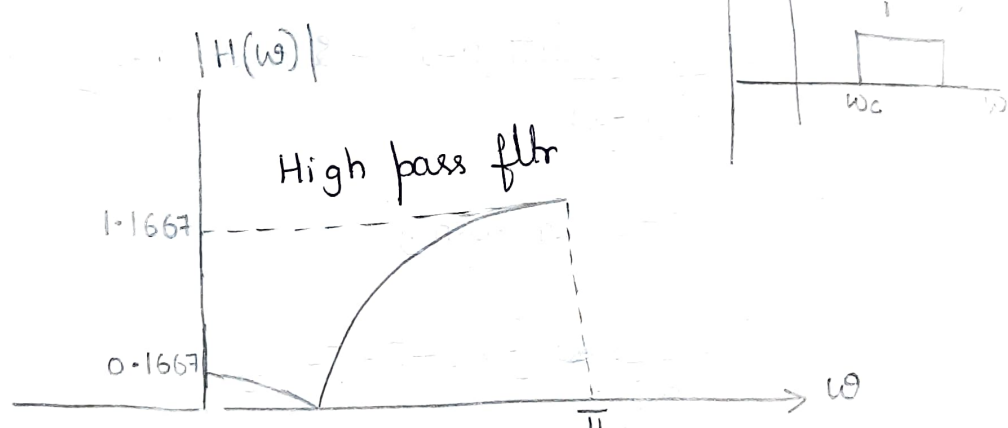 |H(ω)|
1
ωc
ω
High pass fltr
1.1667
0.1667
ω
π